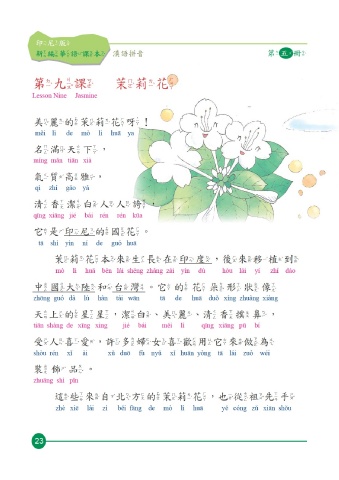 印尼版
新編華語課本 漢語拼音 第五冊
第九課 茉莉花
Lesson Nine Jasmine
美麗的茉莉花呀！
měi lì de mò lì huā ya
名滿天下，
míng mǎn tiān xià
氣質高雅，
qì zhí gāo yǎ
清香潔白人人誇，
qīng xiāng jié bái rén rén kuā
它是印尼的國花。
tā shì yìn ní de guó huā
茉莉花本來生長在印度，後來移植到
mò lì huā běn lái shēng zhǎng zài yìn dù hòu lái yí zhí dào
中國大陸和台灣。它的花朵形狀像
zhōng guó dà lù hàn tái wān tā de huā duǒ xíng zhuàng xiàng
天上的星星，潔白、美麗、清香撲鼻，
tiān shàng de xīng xīng jié bái měi lì qīng xiāng pū bí
受人喜愛。許多婦女喜歡用它來做為
shòu rén xǐ ài xǔ duō fù nyǔ xǐ huān yòng tā lái zuò wéi
裝飾品。
zhuāng shì pǐn
這些來自北方的茉莉花，也從祖先手
zhè xiē lái zì běi fāng de mò lì huā yě cóng zǔ xiān shǒu
23